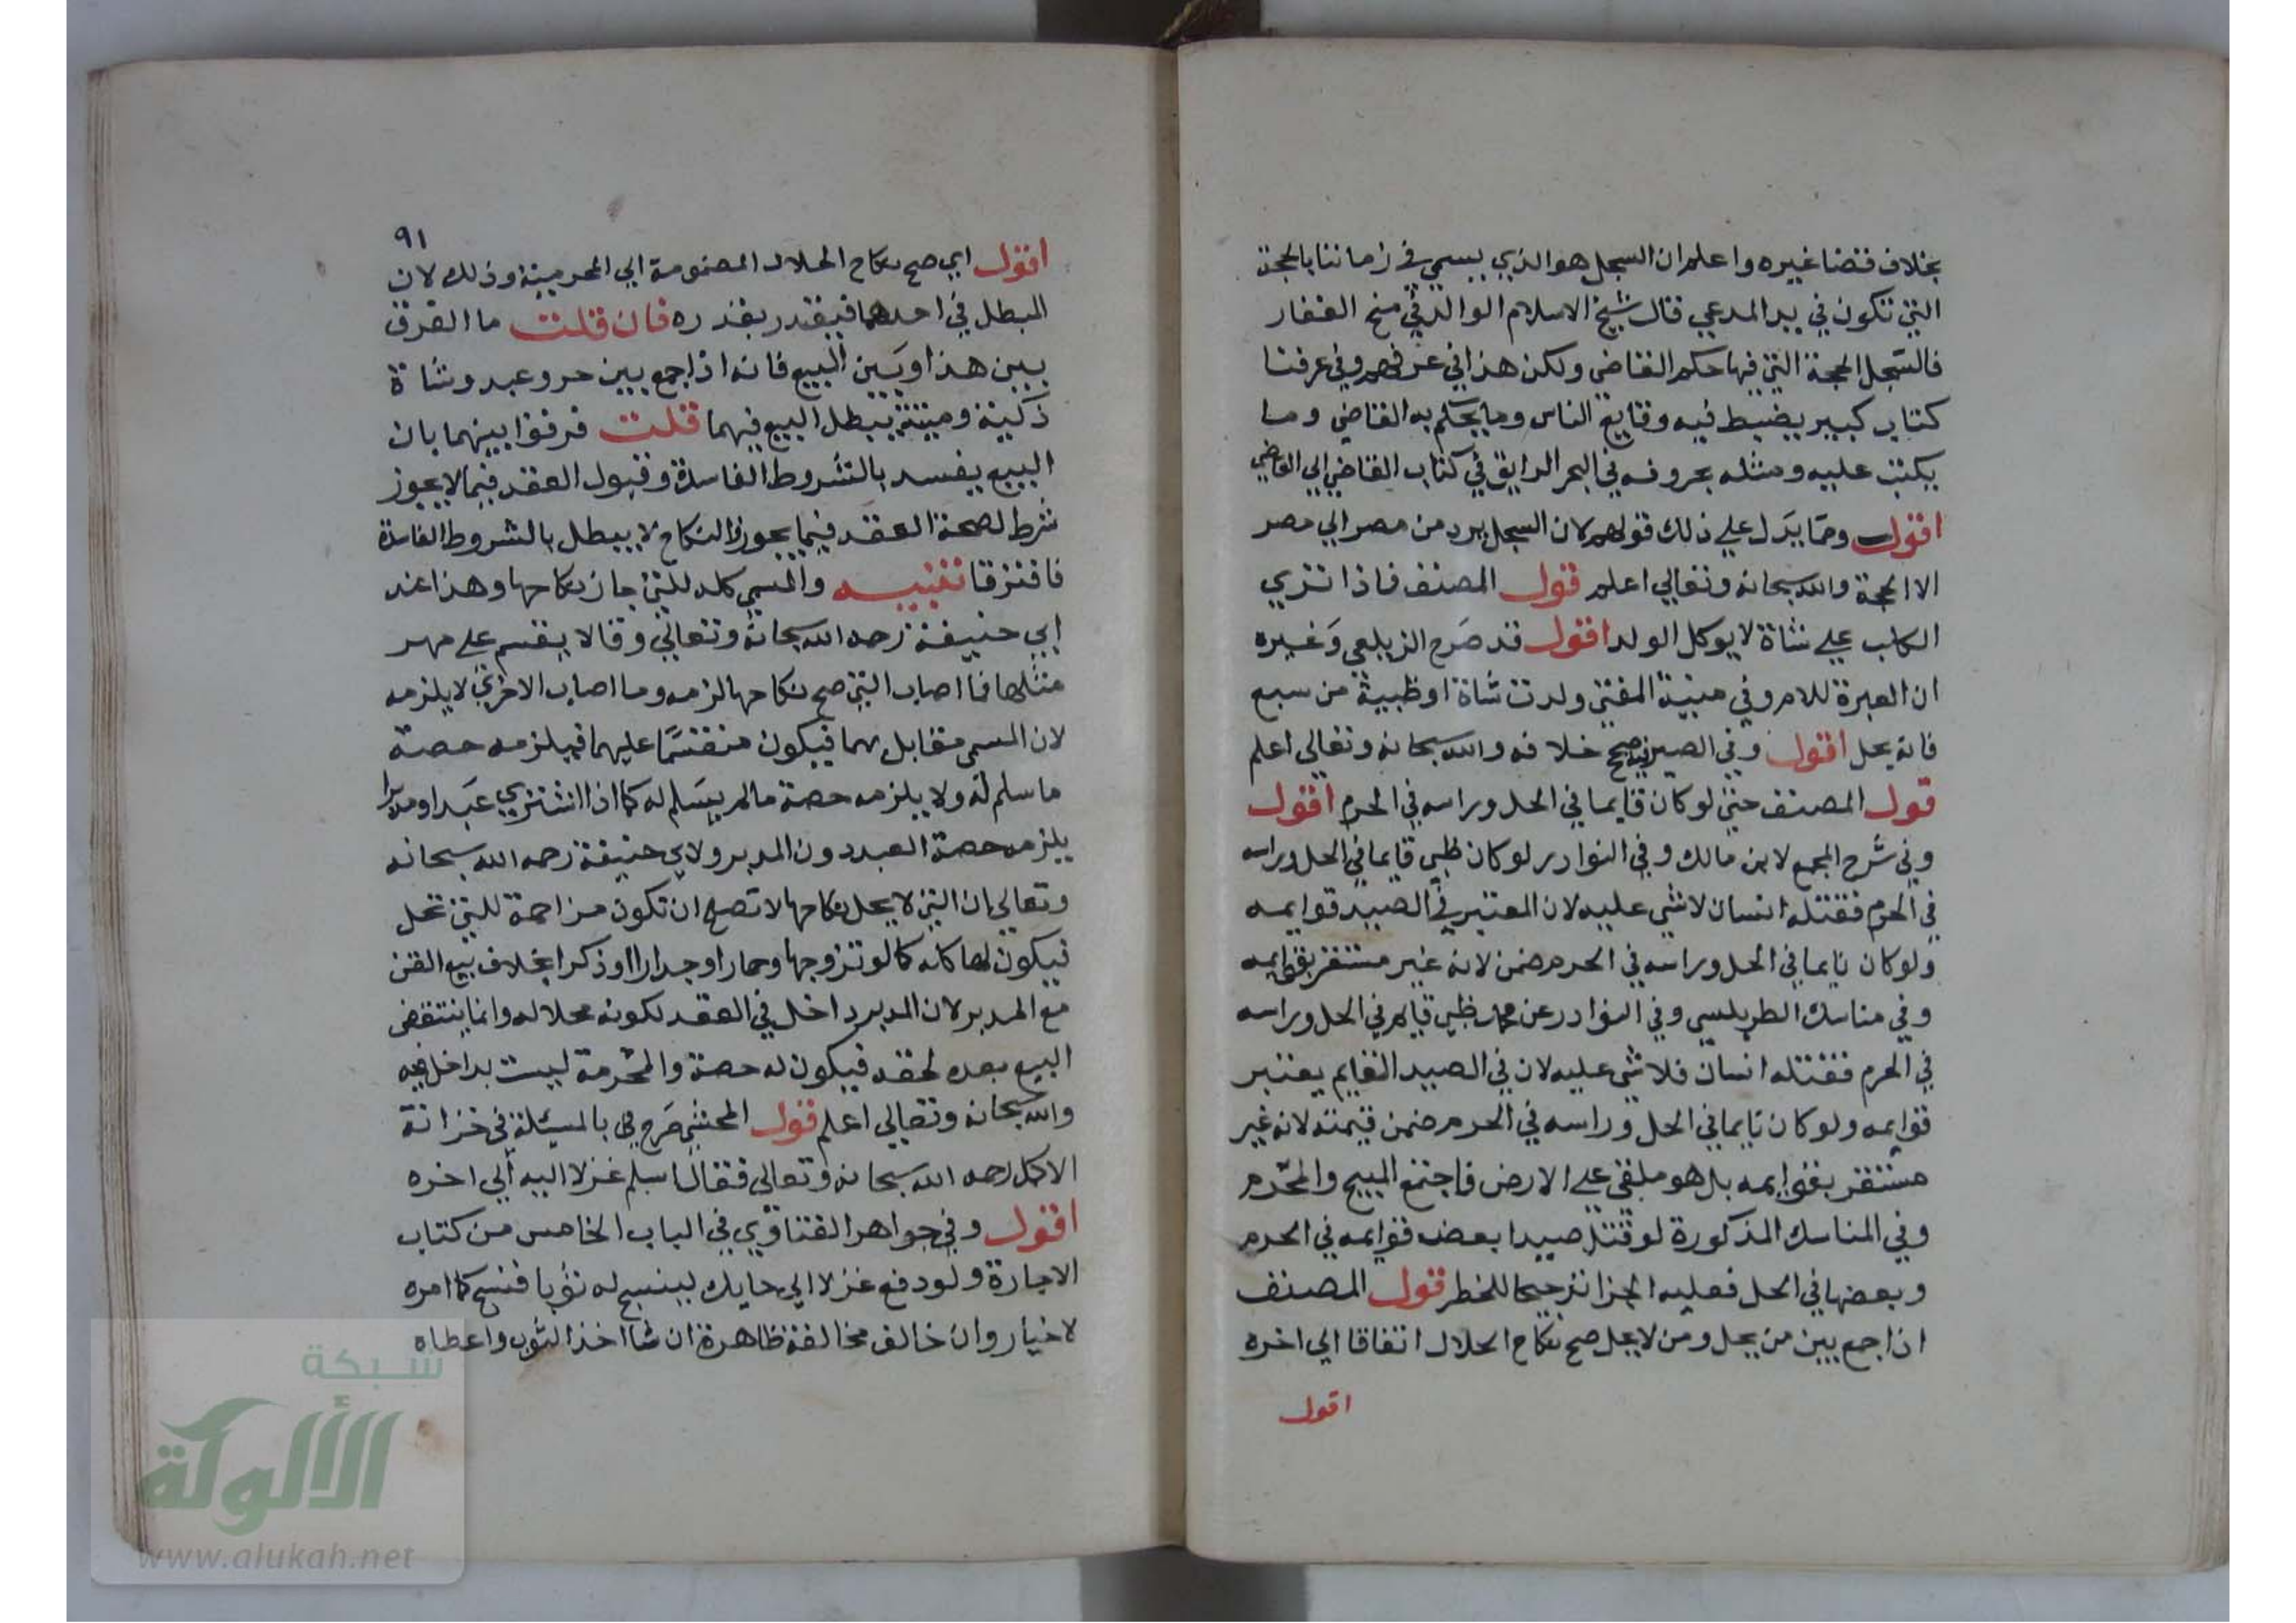 بخلاف قضا غيره واعلم ان السجل هو الذي يسمي في زماننا بالحجة
التي تكون في يد المدعي قال شيخ الاسلام الوالد في منح الغفار
فالسجل الحجة التي فيها حكم القاضي ولكن هذا في عرفهم وفي عرفنا
كتاب كبير يضبط فيه وقايع الناس وما يحكم به القاضي وما
يكتب عليه ومثله بحروفه في البحر الرايق في كتاب القاضي الي القاضي
اقول ومما يدل علي ذلك قولهم لان السجل يرد من مصر الي مصر
الا الحجة والله سبحانه وتعالي اعلم قول المصنف فاذا تزي
الكلب علي شاة لا يوكل الولد اقول قد صرح الزيلعي وغيره
ان العبرة للام وفي منية المفتي ولدت شاة او ظبية من سبع
فانه يحل اقول وفي الصيرفية صحح خلافه والله سبحانه وتعالي اعلم
قول المصنف حتي لو كان قايما في الحل وراسه في الحرم اقول
وفي شرح المجمع لابن مالك وفي النوادر لو كان ظبي قايما في الحل وراسه
في الحرم فقتله انسان لا شي عليه لان المعتبر في الصيد قوايمه
ولو كان نايما في الحل وراسه في الحرم ضمن لانه غير مستقر بقوايمه
وفي مناسك الطربلسي وفي النوادر عن محمد ظبي قايم في الحل وراسه
في الحرم فقتله انسان فلا شي عليه لان في الصيد القايم يعتبر
قوايمه ولو كان نايما في الحل وراسه في الحرم ضمن قيمته لانه غير
مستقر بقوايمه بل هو ملقي علي الارض فاجتمع المبيح والمحرم
وفي المناسك المذكورة لو قتل صيدا بعض قوايمه في الحرم
وبعضها في الحل فعليه الجزا ترجيحا للخطر قول المصنف
اذا جمع بين من يحل ومن لا يحل صح نكاح الحلال اتفاقا الي اخره
اقول
٩١
اقول اي صح نكاح الحلال المضمومة الي المحرمية وذلك لان
المبطل في احدهما فيقدر بقدره فان قلت ما الفرق
بين هذا وبين البيع فانه اذا جمع بين حر وعبد وشاة
ذكية وميتة يبطل البيع فيهما قلت فرقوا بينهما بان
البيع يفسد بالشروط الفاسدة وقبول العقد فيما لا يجوز
شرط لصحة العقد فيما يجوز والنكاح لا يبطل بالشروط الفاسدة
فافترقا تنبيه والمسمي كله للتي جاز نكاحها وهذا عند
ابي حنيفة رحمه الله سبحانه وتعالي وقالا يقسم علي مهر
مثلها فما اصاب التي صح نكاحها لزمه وما اصاب الاخري لا يلزمه
لان المسمي مقابل بهما فيكون منقسما عليهما فيلزمه حصة
ما سلم له ولا يلزمه حصة ما لم يسلم له كما اذا اشتري عبدا ومدبرا
يلزمه حصة العبد دون المدبر ولابي حنيفة رحمه الله سبحانه
وتعالي ان التي لا يحل نكاحها لا تصلح ان تكون مزاحمة للتي تحل
فيكون لها كله كما لو تزوجها وحمارا وجدارا وذكرا بخلاف بيع القن
مع المدبر لان المدبر داخل في العقد لكونه محلا له وانما ينتقض
البيع بعده لحقه فيكون له حصة والمحرمة ليست بداخل فيه
والله سبحانه وتعالي اعلم قول المحشي صرح في بالمسيلة في خزانة
الاكمل رحمه الله سبحانه وتعالي فقال اسلم غزلا اليه الي اخره
اقول وفي جواهر الفتاوي في الباب الخامس من كتاب
الاجارة ولو دفع غزلا الي حايك لينسج له ثوبا فنسج كما امره
لا خيار وان خالف مخالفة ظاهرة ان شا اخذ الثوب واعطاه
شبكة
الألوكة
www.alukah.net